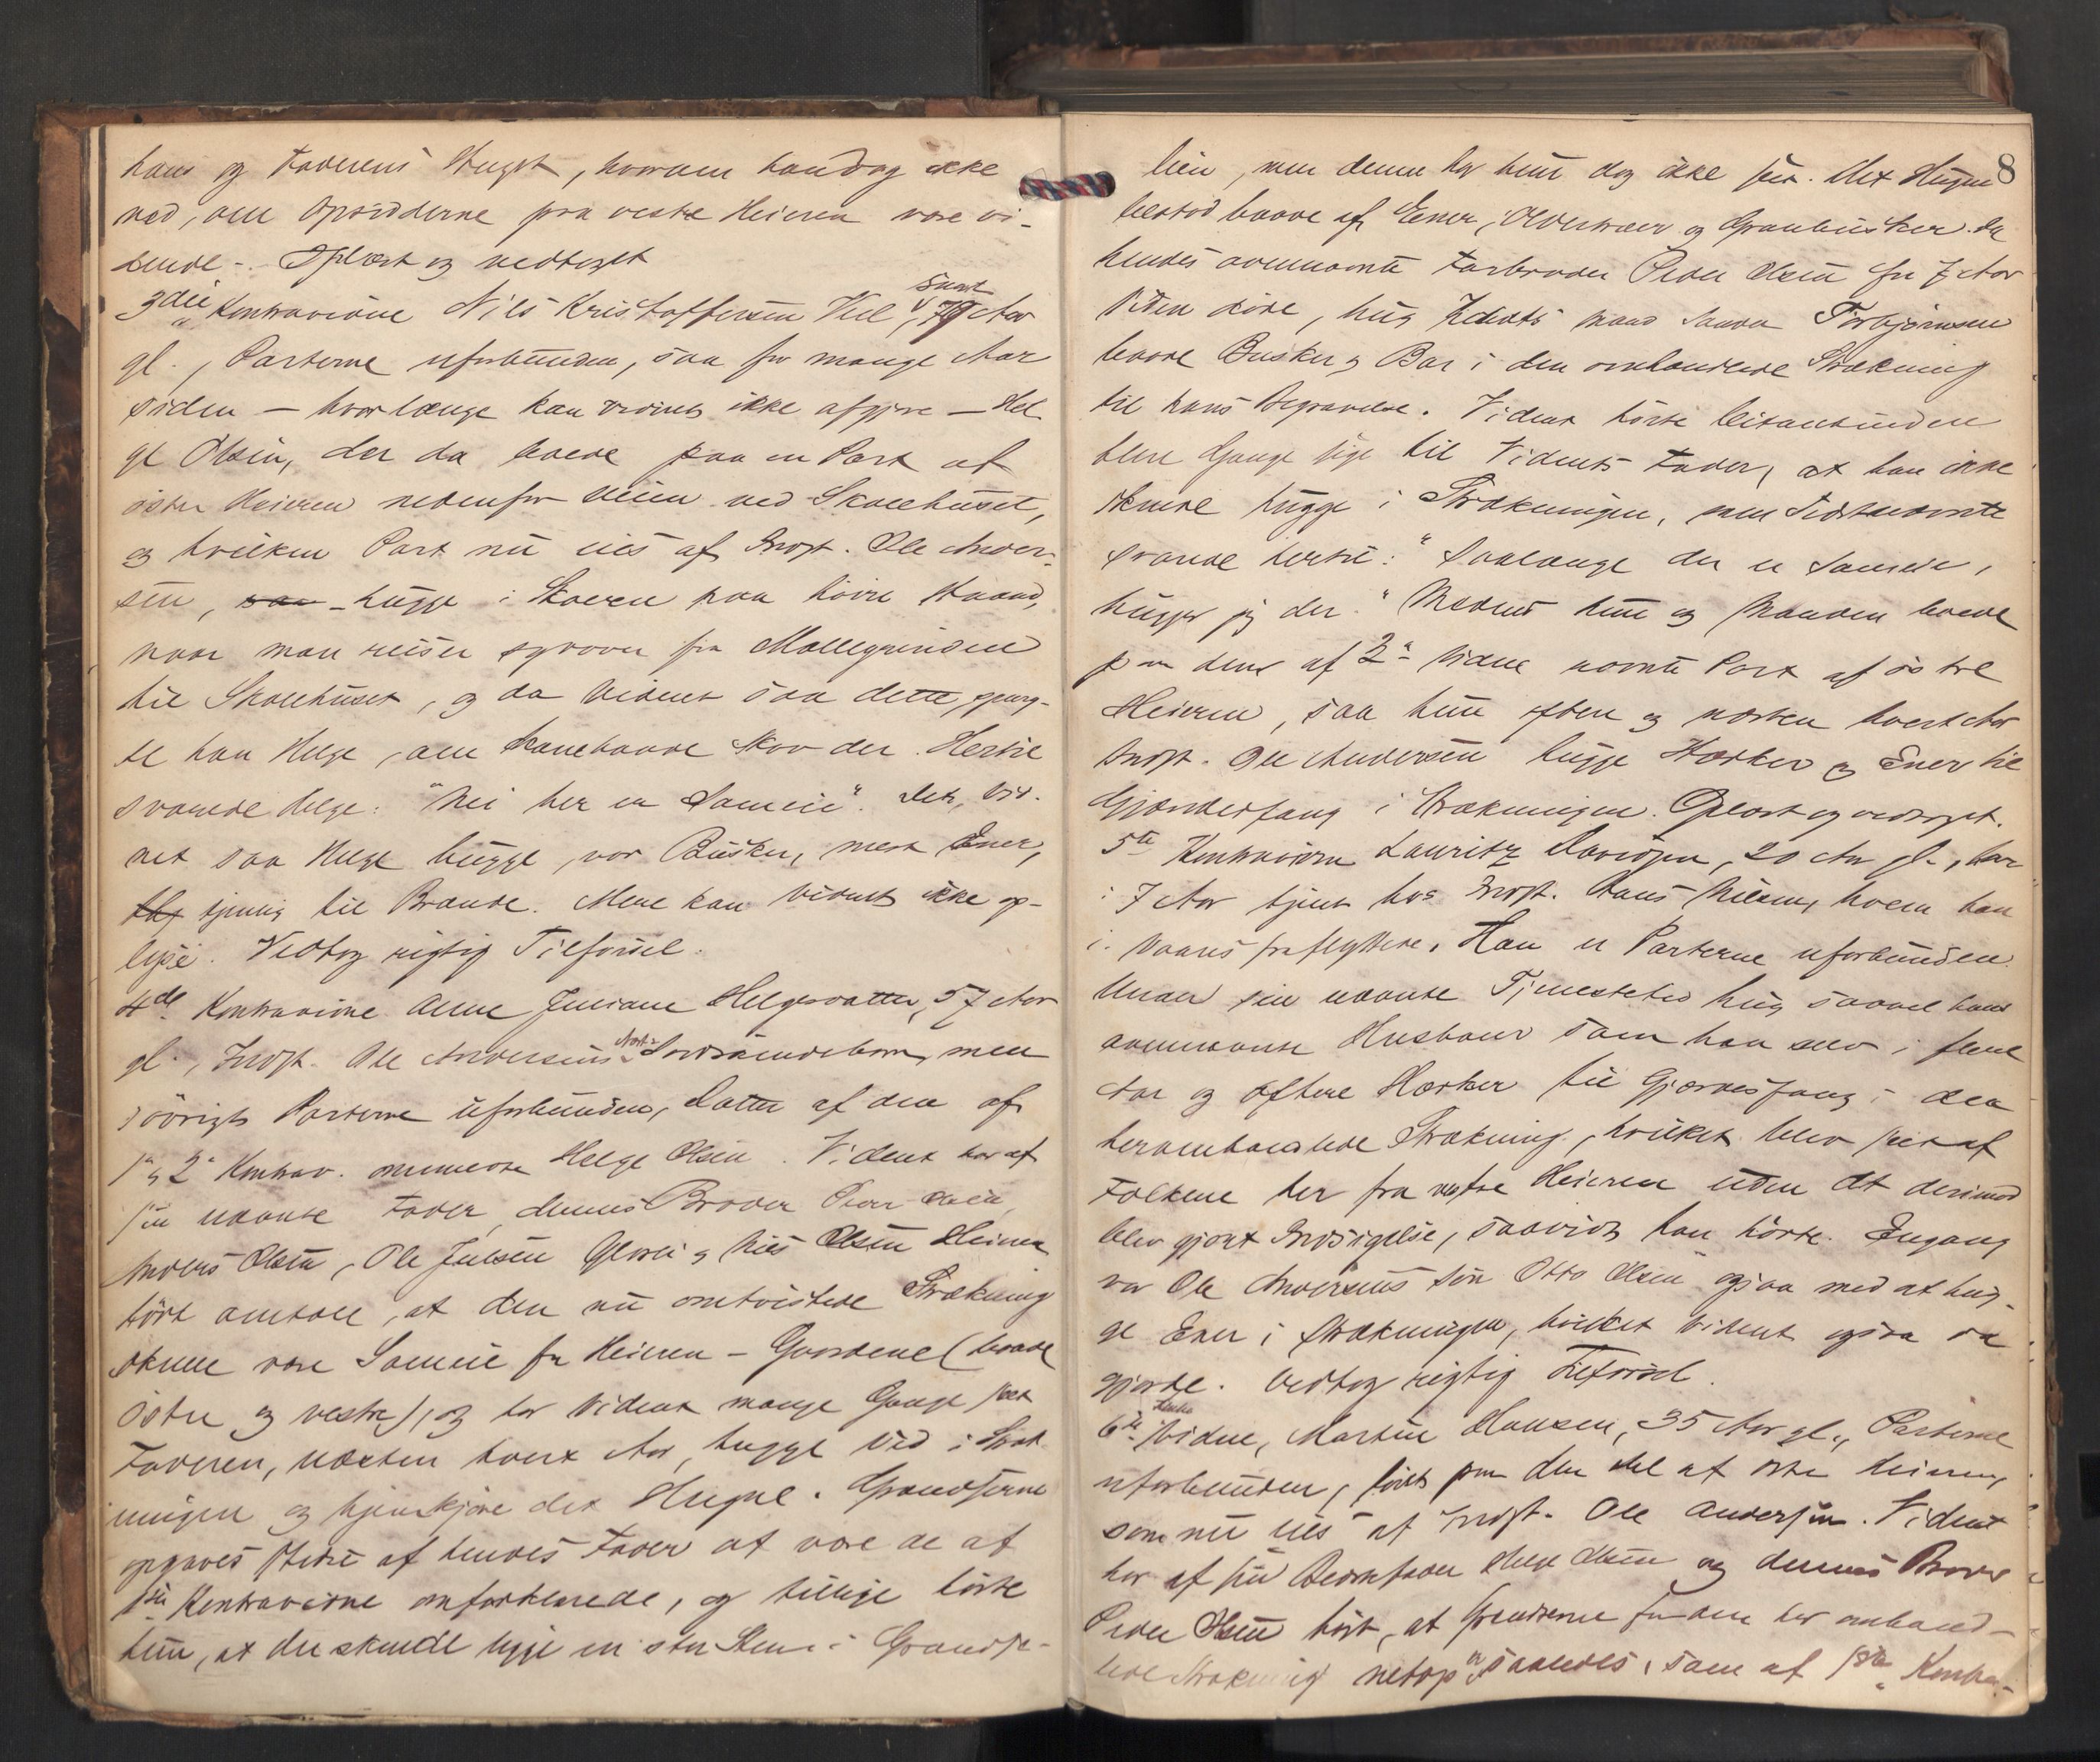 hans og Faderens Hugst, hvorom han dog ikke
ved, om Opsidderne paa vestre Heieren vare vi-
dende. - Oplæst og vedtaget
3die Kontravidne Nils Kristoffersen Vel, snart 79 Aar
gl., Parterne uforbunden, saa for mange Aar
siden — hvorlænge kan Vidnet ikke afgjøre — Hel
ge Olsen, der da boede paa en Part af
østre Heieren nedenfor Veien ved Skolehuset,
og hvilken Part nu eies af Indst. Ole Ander-
sen, hugge i Skoven paa høire Haand,
naar man reiser syvover fra Mollegrinden
til Skolehuset, og da Vidnet saa dette, spurg-
te han Helge, om han havde Skov der. Hertil
svarede Helge: "Nei her er Sameie". Det, Vid-
net saa Helge hugge, var Busker, mest Ener,
tjenlig til Brænde. Mere kan Vidnet ikke op-
lyse. Vedtog rigtig Tilførsel.
4de Kontravidne Anne Juliane Helgesdatter, 57 Aar
gl., Indst. Ole Andersens Næst-Sødskendebarn, men
iøvrigt Parterne uforbunden, Datter af den af
1ste og 2de Kontrav. omnævnte Helge Olsen. Vidnet har af
sin nævnte Fader, dennes Broder Peder Olsen,
Anders Olsen, Ole Julsen og Nils Olsen Heieren
hørt omtale, at den nu omtvistede Strækning
skulle være Sameie for Heieren-Gaardene (baade
østre og vestre), og har Vidnet mange Gange seet
Faderen, næsten hvert Aar, hugge Ved i Stræk
ningen og hjemkjøre det Hugne. Grændserne
opgaves stedse af hendes Fader at være de af
1ste Kontravidne omforklarede, og tillige hørte
hun, at der skulde ligge en stor Sten i Grændse-
8
linien, men denne har hun dog ikke seet. Det Hugne
bestod baade af Ener, Oldertræer og Granbusker. Da
hendes ovennævnte Farbroder Peder Olsen for 7 Aar
siden døde, hug Vidnets Mand Søren Torbjørnsen
baade Busker og Bar i den omhandlede Strækning
til hans Begravelse. Vidnet hørte Citantinden
flere Gange sige til Vidnets Fader, at han ikke
skulde hugge i Strækningen, men Sidstnævnte
svarede hertil: "Saalænge der er Sameie,
hugger jeg der." Medens hun og Manden boede
paa den af 2de Vidne nævnte Part af østre
Heieren, saa hun oftere og næsten hvert Aar
Indst. Ole Andersen hugge Hæsker og Ener til
Gjærdesfang i Strækningen. Oplæst og vedtaget.
5te Kontravidne Lauritz Davidsen, 20 Aar gl., har
i 7 Aar tjent hos Indst. Hans Nilsen, hvem han
i Vaares fraflyttede. Han er Parterne uforbunden.
Under sin nævnte Tjenestetid hug saavel hans
ovennævnte Husbond som han selv i flere
Aar og oftere Hæsker til Gjærdesfang i den
heromhandlede Strækning, hvilket blev seet af
Folkene her fra vestre Heieren uden at derimod
blev gjort Indsigelse, saavidt han hørte. Engang
var Ole Andersens Søn Otto Olsen ogsaa med at hug-
ge Ener i Strækningen, hvilket Vidnet ogsaa da
gjorde. Vedtog rigtig Tilførsel.
6te Vidne, Martin Hansen, 35 Aar gl., Parterne
uforbunden, født paa den Del af østre Heieren,
som nu eies af Indst. Ole Andersen. Vidnet
har af sin Bedstefader Helge Olsen og dennes Broder
Peder Olsen hørt, at Grændserne for den her omhand-
lede Strækning netop er saaledes, som af 1ste Kontra-